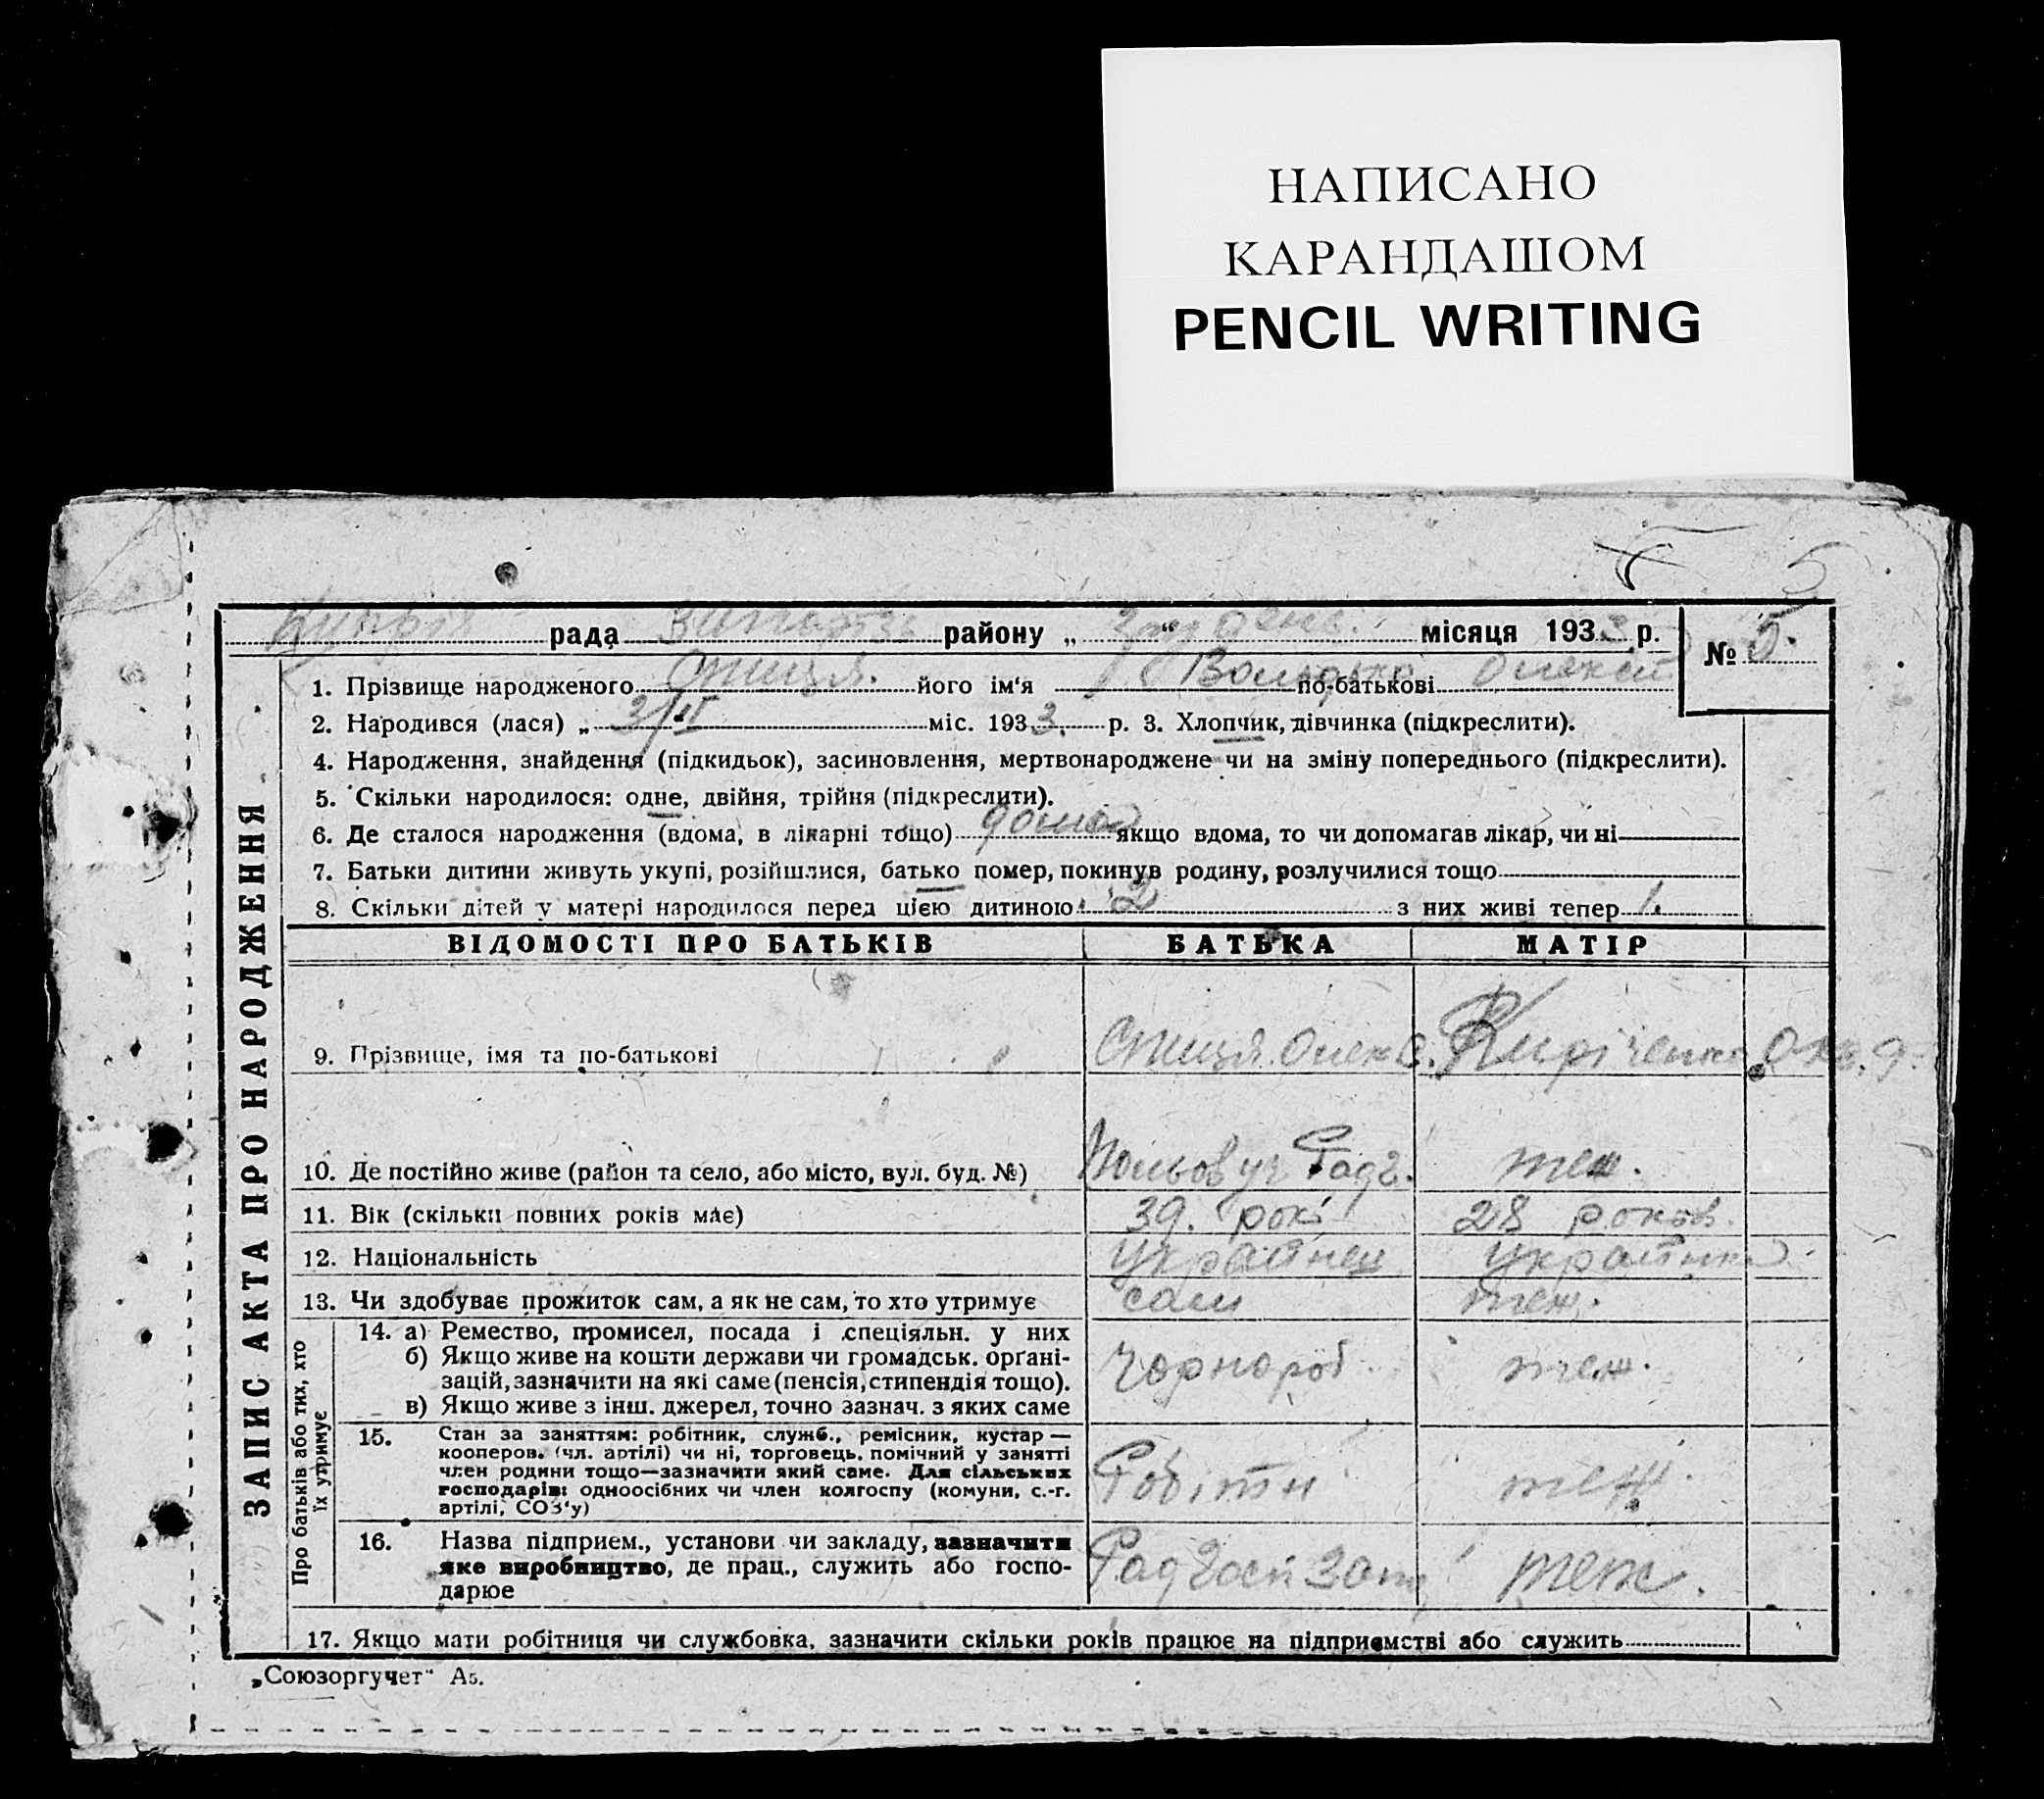 НАПИСАНО
КАРАНДАШОМ
PENCIL WRITING
5
рада районy „ “ місяця 1933 р.
№ 5.
1. Прізвище народженого Спиця. його ім‘я Володько по-батькові Олексі
2. Народився (лася) „ 3/II міс. 1933. р. 3. Хлопчик, дівчинка (підкреслити).
4. Народження, знайдення (підкидьок), засиновлення, мертвонароджене чи на зміну попереднього (підкреслити).
5. Скільки народилося: одне, двійня, трійня (підкреслити).
6. Де сталося народження (вдома, в лікарні тощо) дома якщо вдома, то чи допомагав лікар, чи ні
7. Батьки дитини живуть укупі, розійшлися, батько помер, покинув родину, розлучилися тощо
8. Скільки дітей у матері народилося перед цією дитиною 2 з них живі тепер 1.
ЗАПИС АКТА ПРО НАРОДЖЕННЯ
ВІДОМОСТІ ПРО БАТЬКІВ БАТЬКА МАТІР
9. Прізвище, імя та по-батькові Спиця Олекс. Киріченко
10. Де постійно живе (район та село, або місто, вул. буд. №) теж.
11. Вік (скільки повних років має) 39. рокі 28 років.
12. Національність Українец Українка
13. Чи здобуває прожиток сам, а як не сам, то хто утримує сам теж.
Про батьків або тих, хто їх утримує
14. а) Ремество, промисел, посада і спеціяльн. у них
б) Якщо живе на кошти держави чи громадськ. органі-
зацій, зазначити на які саме (пенсія, стипендія тощо). Чорнороб теж.
в) Якщо живе з інш. джерел, точно зазнач. з яких саме
15. Стан за заняттям: робітник, служб., ремісник, кустар —
кооперов. (чл. артілі) чи ні, торговець, помічний у занятті
член родини тощо—зазначити який саме. Для сільських
господарів: одноосібних чи член колгоспу (комуни, с.-г. Робітн теж.
артілі, СОЗ‘у)
16. Назва підприєм., установи чи закладу, зазначити
яке виробництво, де прац., служить або госпо- Радгосп теж.
дарює
17. Якщо мати робітниця чи службовка, зазначити скільки років працює на підприємстві або служить
„Союзоргучет“ А5.